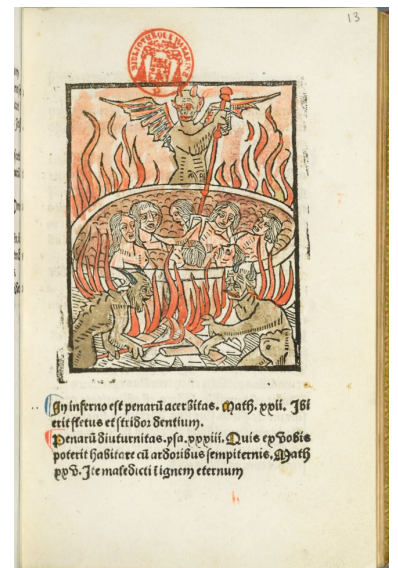 13
BIBLIOTHEQUE MAZARINE
In inferno est penarũ acerbitas. Math. xxii. Ibi
erit fletus et stridor dentium.
Penarũ diuturnitas. psa. xxxiii. Quis ex vobis
poterit habitare cũ ardoribus sempiternis. Math
xxv. Ite maledicti ĩ ignem eternum